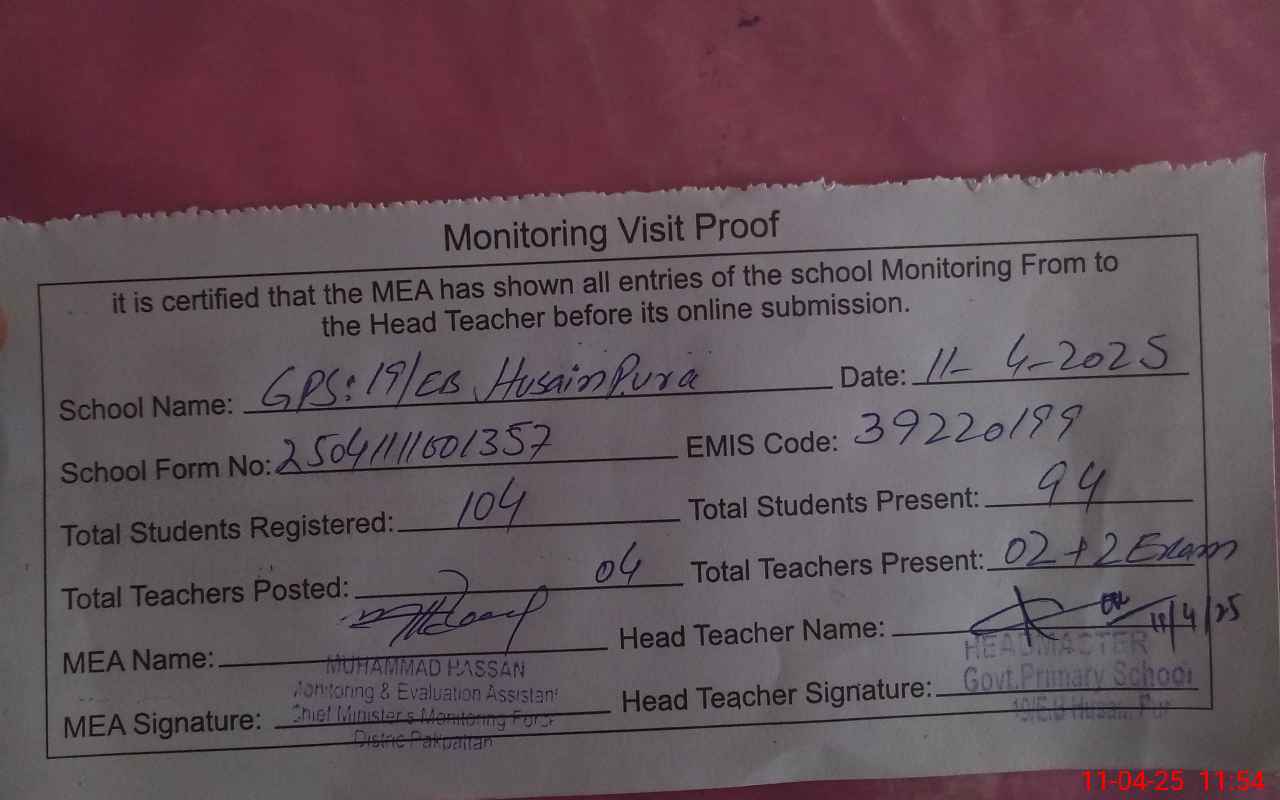 Monitoring Visit Proof
it is certified that the MEA has shown all entries of the school Monitoring From to
the Head Teacher before its online submission.
School Name: GPS: 19/EB HusainPura Date: 11-4-2025
School Form No: 25041111601357 EMIS Code: 39220199
Total Students Registered: 104 Total Students Present: 94
Total Teachers Posted: 04 Total Teachers Present: 02+2 Exam
MEA Name: Head Teacher Name: 11/4/25
MUHAMMAD HASSAN HEADMASTER
Monitoring & Evaluation Assistant Govt.Primary School
MEA Signature: Head Teacher Signature:
Chief Minister's Monitoring Force 19/E.B
District Pakpattan
11-04-25 11:54